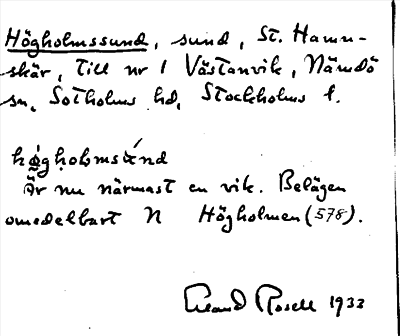 Högholmssund, sund, St. Hamn-
skär, Till nr 1 Västanvik, Nämdö
sn, Sotholms hd, Stockholms l.
hǫ́ghọlmsùnd
Är nu närmast en vik. Belägen
omedelbart N Högholmen (578).
Erland Rosell 1933